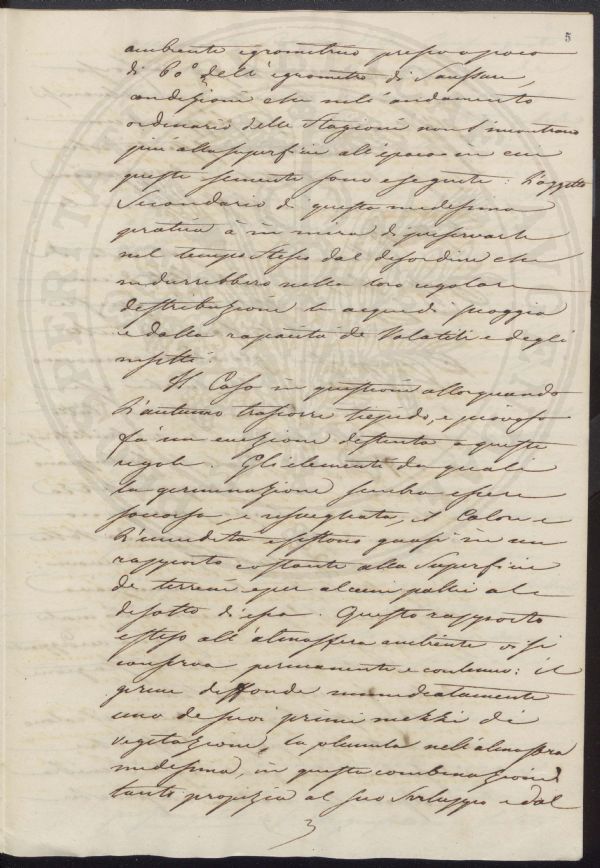 5
ambiente igrometrico presso a poco
di 60° dell' igrometro di Saussure,
condizioni che nell' andamento
ordinario delle Stagioni non s'incontrano
più alla superficie all' epoca in cui
queste semente sono eseguite: L'oggetto
Secondario di questa medesima
pratica à in mira di preservarle
nel tempo stesso dal disordine che
indurrebbero nella loro regolare
distribuzione le acque di pioggia
e dalla rapacità de Volatili e degli
insetti.
Il Caso in questione allorquando
L'autunno trascorre tiepido, e piovoso
fà un eccezione distinta a queste
regole. Gli elementi da quali
la germinazione sembra essere
soccorsa, e risvegliata, il Calore e
L'umidità esistono quasi in un
rapporto costante alla Superficie
de terreni e per alcuni pollici al
disotto di essa. Questo rapporto
esteso all' atmosfera ambiente vi si
conserva permanente e continuo: il
germe diffonde immediatamente
uno de suoi primi mezzi di
vegetazione, la plumula nell' atmosfera
medesima, in questa combinazione
tanto propizia al suo Sviluppo e dal
3